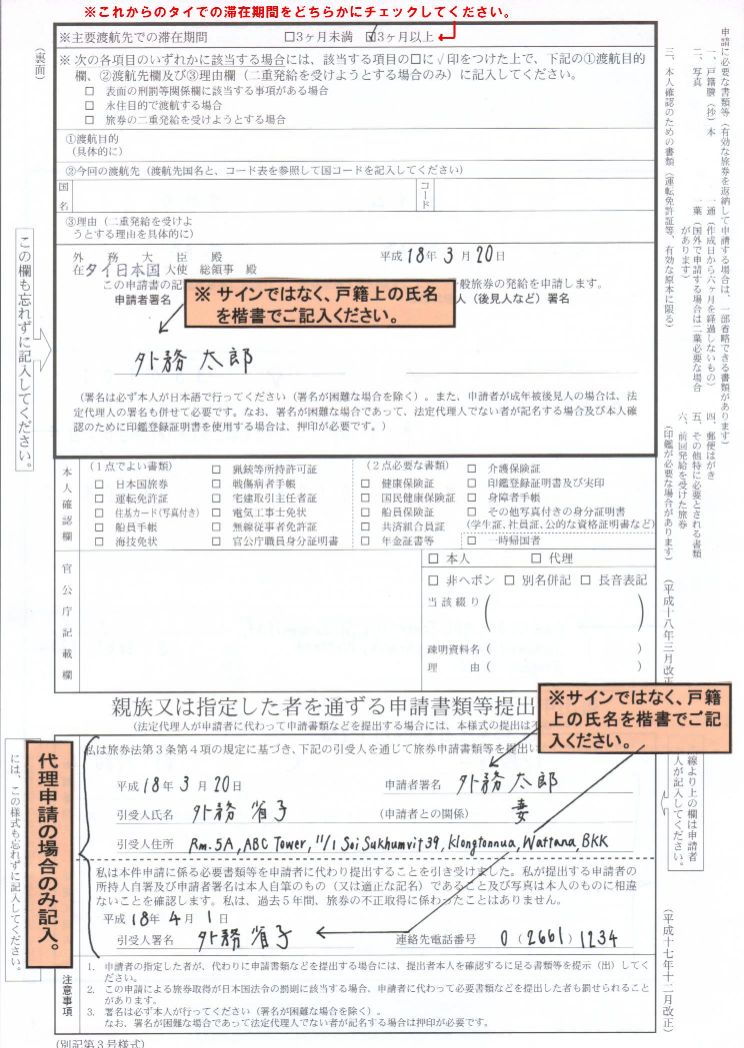 ※これからのタイでの滞在期間をどちらかにチェックしてください。
※主要渡航先での滞在期間 □3ヶ月未満 ☑3ヶ月以上
※ 次の各項目のいずれかに該当する場合には、該当する項目の□に√印をつけた上で、下記の①渡航目的
欄、②渡航先欄及び③理由欄（二重発給を受けようとする場合のみ）に記入してください。
□ 表面の刑罰等関係欄に該当する事項がある場合
□ 永住目的で渡航する場合
□ 旅券の二重発給を受けようとする場合
①渡航目的
（具体的に）
②今回の渡航先（渡航先国名と、コード表を参照して国コードを記入してください）
国名
コード
③理由（二重発給を受けよ
うとする理由を具体的に）
外務大臣 殿
平成 18年 3月 20日
在タイ日本国大使 総領事 殿
この申請書の記
一般旅券の発給を申請します。
申請者署名
人（後見人など）署名
※ サインではなく、戸籍上の氏名
を楷書でご記入ください。
外務 太郎
（署名は必ず本人が日本語で行ってください（署名が困難な場合を除く）。また、申請者が成年被後見人の場合は、法
定代理人の署名も併せて必要です。なお、署名が困難な場合であって、法定代理人でない者が記名する場合及び本人確
認のために印鑑登録証明書を使用する場合は、押印が必要です。）
本人確認欄
（1点でよい書類）
□ 日本国旅券
□ 運転免許証
□ 住基カード(写真付き)
□ 船員手帳
□ 海技免状
□ 猟銃等所持許可証
□ 戦傷病者手帳
□ 宅建取引主任者証
□ 電気工事士免状
□ 無線従事者免許証
□ 官公庁職員身分証明書
（2点必要な書類）
□ 健康保険証
□ 国民健康保険証
□ 船員保険証
□ 共済組合員証
□ 年金証書等
□ 介護保険証
□ 印鑑登録証明書及び実印
□ 身障者手帳
□ その他写真付きの身分証明書
（学生証、社員証、公的な資格証明書など）
□ 一時帰国者
官公庁記載欄
□ 本人 □ 代理
□ 非ヘボン □ 別名併記 □ 長音表記
当該綴り（ ）
疎明資料名（ ）
理由（ ）
親族又は指定した者を通ずる申請書類等提出
（法定代理人が申請者に代わって申請書類などを提出する場合には、本様式の提出は
※サインではなく、戸籍
上の氏名を楷書でご記
入ください。
私は旅券法第3条第4項の規定に基づき、下記の引受人を通じて旅券申請書類等を提出い
平成 18年 3月 20日
申請者署名 外務 太郎
引受人氏名 外務 省子
（申請者との関係） 妻
引受人住所 Rm. 5A, ABC Tower, 11/1 Soi Sukhumvit 39, Klongtonnua, Wattana, BKK
私は本件申請に係る必要書類等を申請者に代わり提出することを引き受けました。私が提出する申請者の
所持人自署及び申請者署名は本人自筆のもの（又は適正な記名）であること及び写真は本人のものに相違
ないことを確認します。私は、過去5年間、旅券の不正取得に係わったことはありません。
平成 18年 4月 1日
引受人署名 外務 省子
連絡先電話番号 0（2661）1234
注意事項
1. 申請者の指定した者が、代わりに申請書類などを提出する場合には、提出者本人を確認するに足る書類等を提示（出）してく
ださい。
2. この申請による旅券取得が日本国法令の罰則に該当する場合、申請者に代わって必要書類などを提出した者も罰せられること
があります。
3. 署名は必ず本人が行ってください（署名が困難な場合を除く）。
なお、署名が困難な場合であって法定代理人でない者が記名する場合は押印が必要です。
（別記第3号様式）
（裏面）
この欄も忘れずに記入してください。
代理申請の場合のみ記入。
には、この様式も忘れずに記入してください。
申請に必要な書類等（有効な旅券を返納して申請する場合は、一部省略できる書類があります）
一、戸籍謄（抄）本 一通（作成日から六ヶ月を経過しないもの）
二、写真 一葉（国外で申請する場合は二葉必要な場合
があります）
三、本人確認のための書類（運転免許証等、有効な原本に限る）
四、郵便はがき
五、その他特に必要とされる書類
六、前回発給を受けた旅券
（印鑑が必要な場合があります）
（平成十八年三月改正
線より上の欄は申請者
人が記入してください。
（平成十七年十二月改正）